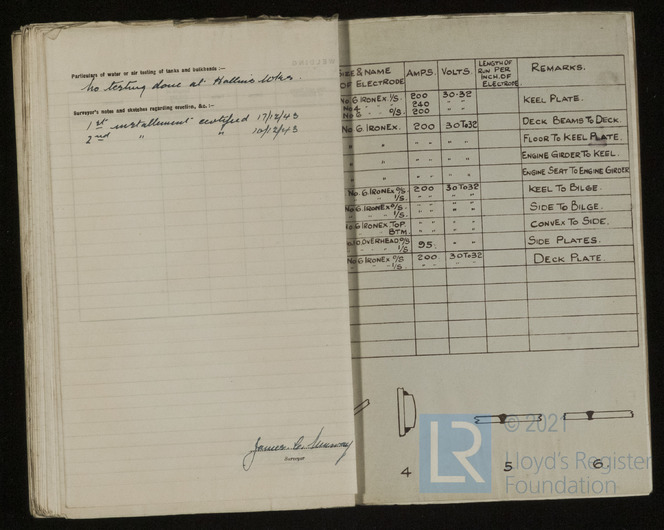 Particulars of water or air testing of tanks and bulkheads :—
No testing done at Wks.
Surveyor's notes and sketches regarding erection, &c. :—
1st installment certified 17/12/43
2nd " " 10/12/43
James
Surveyor
SIZE & NAME OF ELECTRODE AMPS. VOLTS. LENGTH OF RUN PER INCH OF ELECTRODE REMARKS.
No 6 IRONEX I/S. 200 30-32 KEEL PLATE.
No 4 " " 240 " "
No 6 " O/S. 200 " "
DECK BEAMS TO DECK.
No 6 IRONEX. 200 30 To 32
" " " " FLOOR TO KEEL PLATE.
" " " " ENGINE GIRDER TO KEEL.
" " " " ENGINE SEAT TO ENGINE GIRDER
No 6 IRONEX O/S. 200 30 To 32 KEEL TO BILGE.
" " I/S. " " " "
No 6 IRONEX O/S. " " " " SIDE TO BILGE.
" " I/S. " " " "
No 6 IRONEX TOP " " " " CONVEX TO SIDE.
" " BTM. " " " "
OVERHEAD O/S 95. " " SIDE PLATES.
" " I/S " " " "
No 6 IRONEX O/S 200 30 To 32 DECK PLATE.
" " I/S. " " " "
4
5
6.
© 2021
LR
Lloyd's Register
Foundation